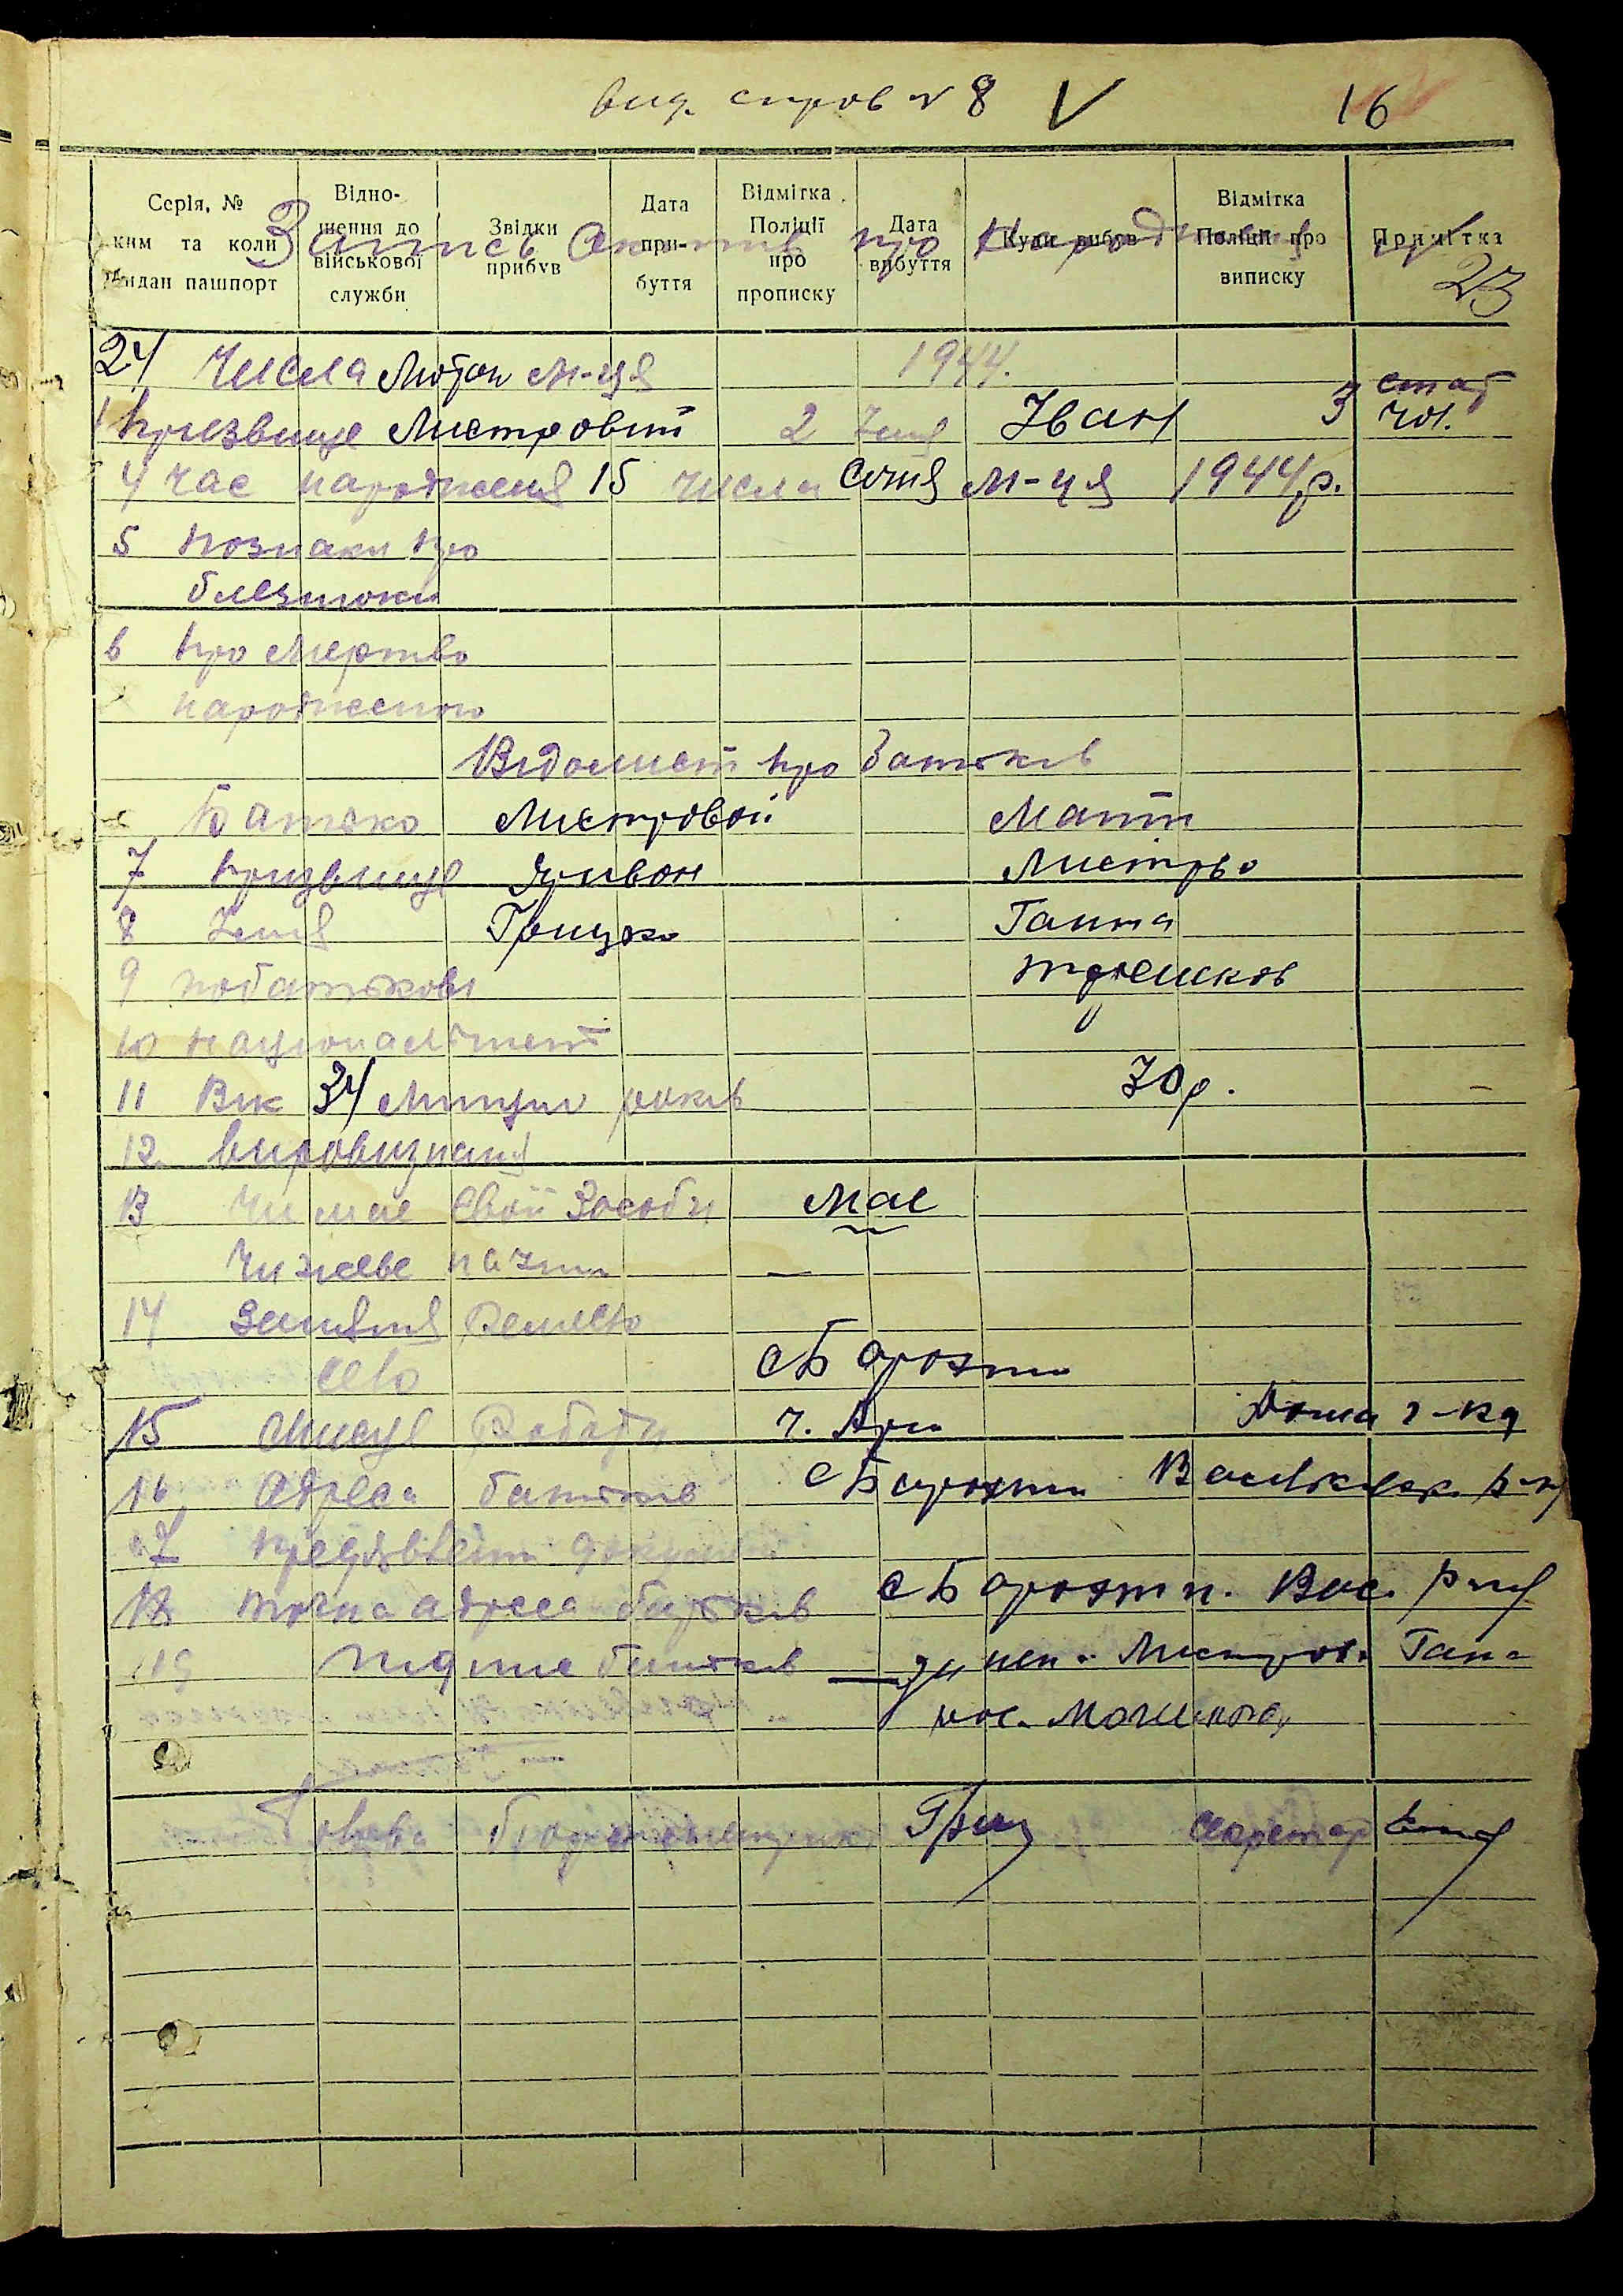 вид. справ № 8 V 16
Серія, № ким та коли видан пашпорт
Відношення до військової служби
Звідки прибув
Дата прибуття
Відмітка Поліції про прописку
Дата вибуття
Куди вибув
Відмітка Поліції про виписку
Примітка
Запись Актів про Народженя №
23
24 Числа Лютого м-ця 1944.
1 Призвище Листровий 2 Імя Іван 3 стат чол.
4 Час народженя 15 числа Січня м-ця 1944 р.
5 Познаки про
близнюки
6 про Мертво
народженого
Відомсті про батьків
Батько Листровой Мати
7 Призвище Яривон Листрво
8 Імя Грицько Ганна
9 побатькові
10 Національност
11 Вік 34 Минуло років 30 р.
12. вировизнаня
13 Чи мае свои Засоби мае
Чи живе на
14 Заняття Ремесло
село с Борохти
15 Мисце Роботи Дома г-ка
16 Адреса батьків с Борохти Васильков. р-ну
17
18 точна адреса батьків с Борохти. Вас. р-ну
19 підпис батьків Листров. Ганна
Голова Гриц Секретар